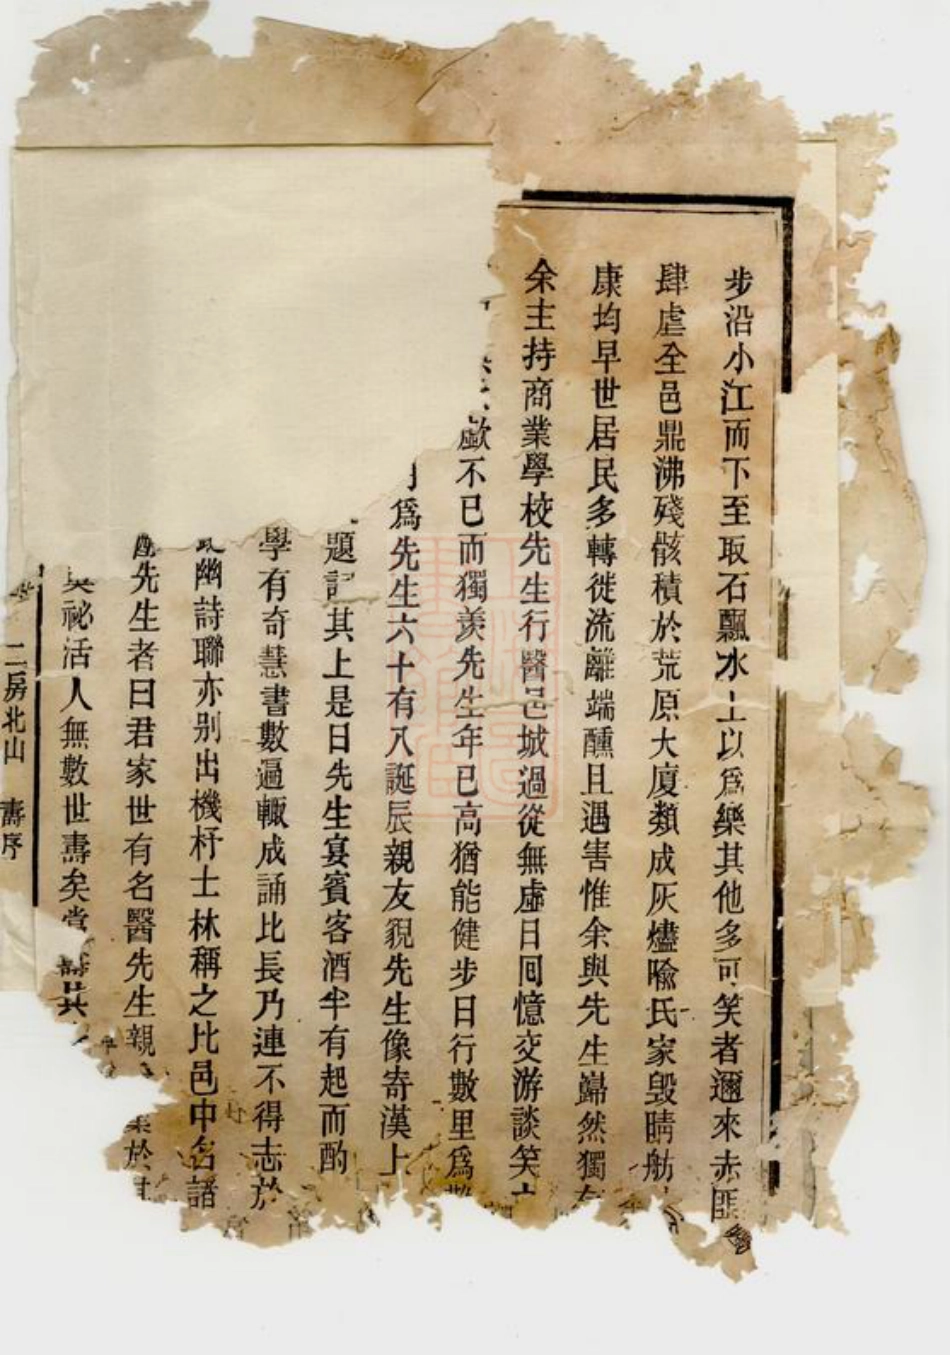 步沿小江而下至取石飄水上以爲樂其他多可笑者邇來赤匪
肆虐全邑鼎沸殘骸積於荒原大廈類成灰燼喩氏家毁晴舫
康均早世居民多轉徙流離端醺且遇害惟余與先生巋然獨
余主持商業學校先生行醫邑城過從無虛日囘憶交游談笑
歔不已而獨羨先生年已高猶能健步日行數里爲
爲先生六十有八誕辰親友貌先生像寄漢上
題記其上是日先生宴賓客酒半有起而酌
學有奇慧書數遍輒成誦比長乃連不得志於
幽詩聯亦别出機杼士林稱之比邑中名諸
先生者曰君家世有名醫先生親
於
祕活人無數世壽矣當
其
二房北山 壽序